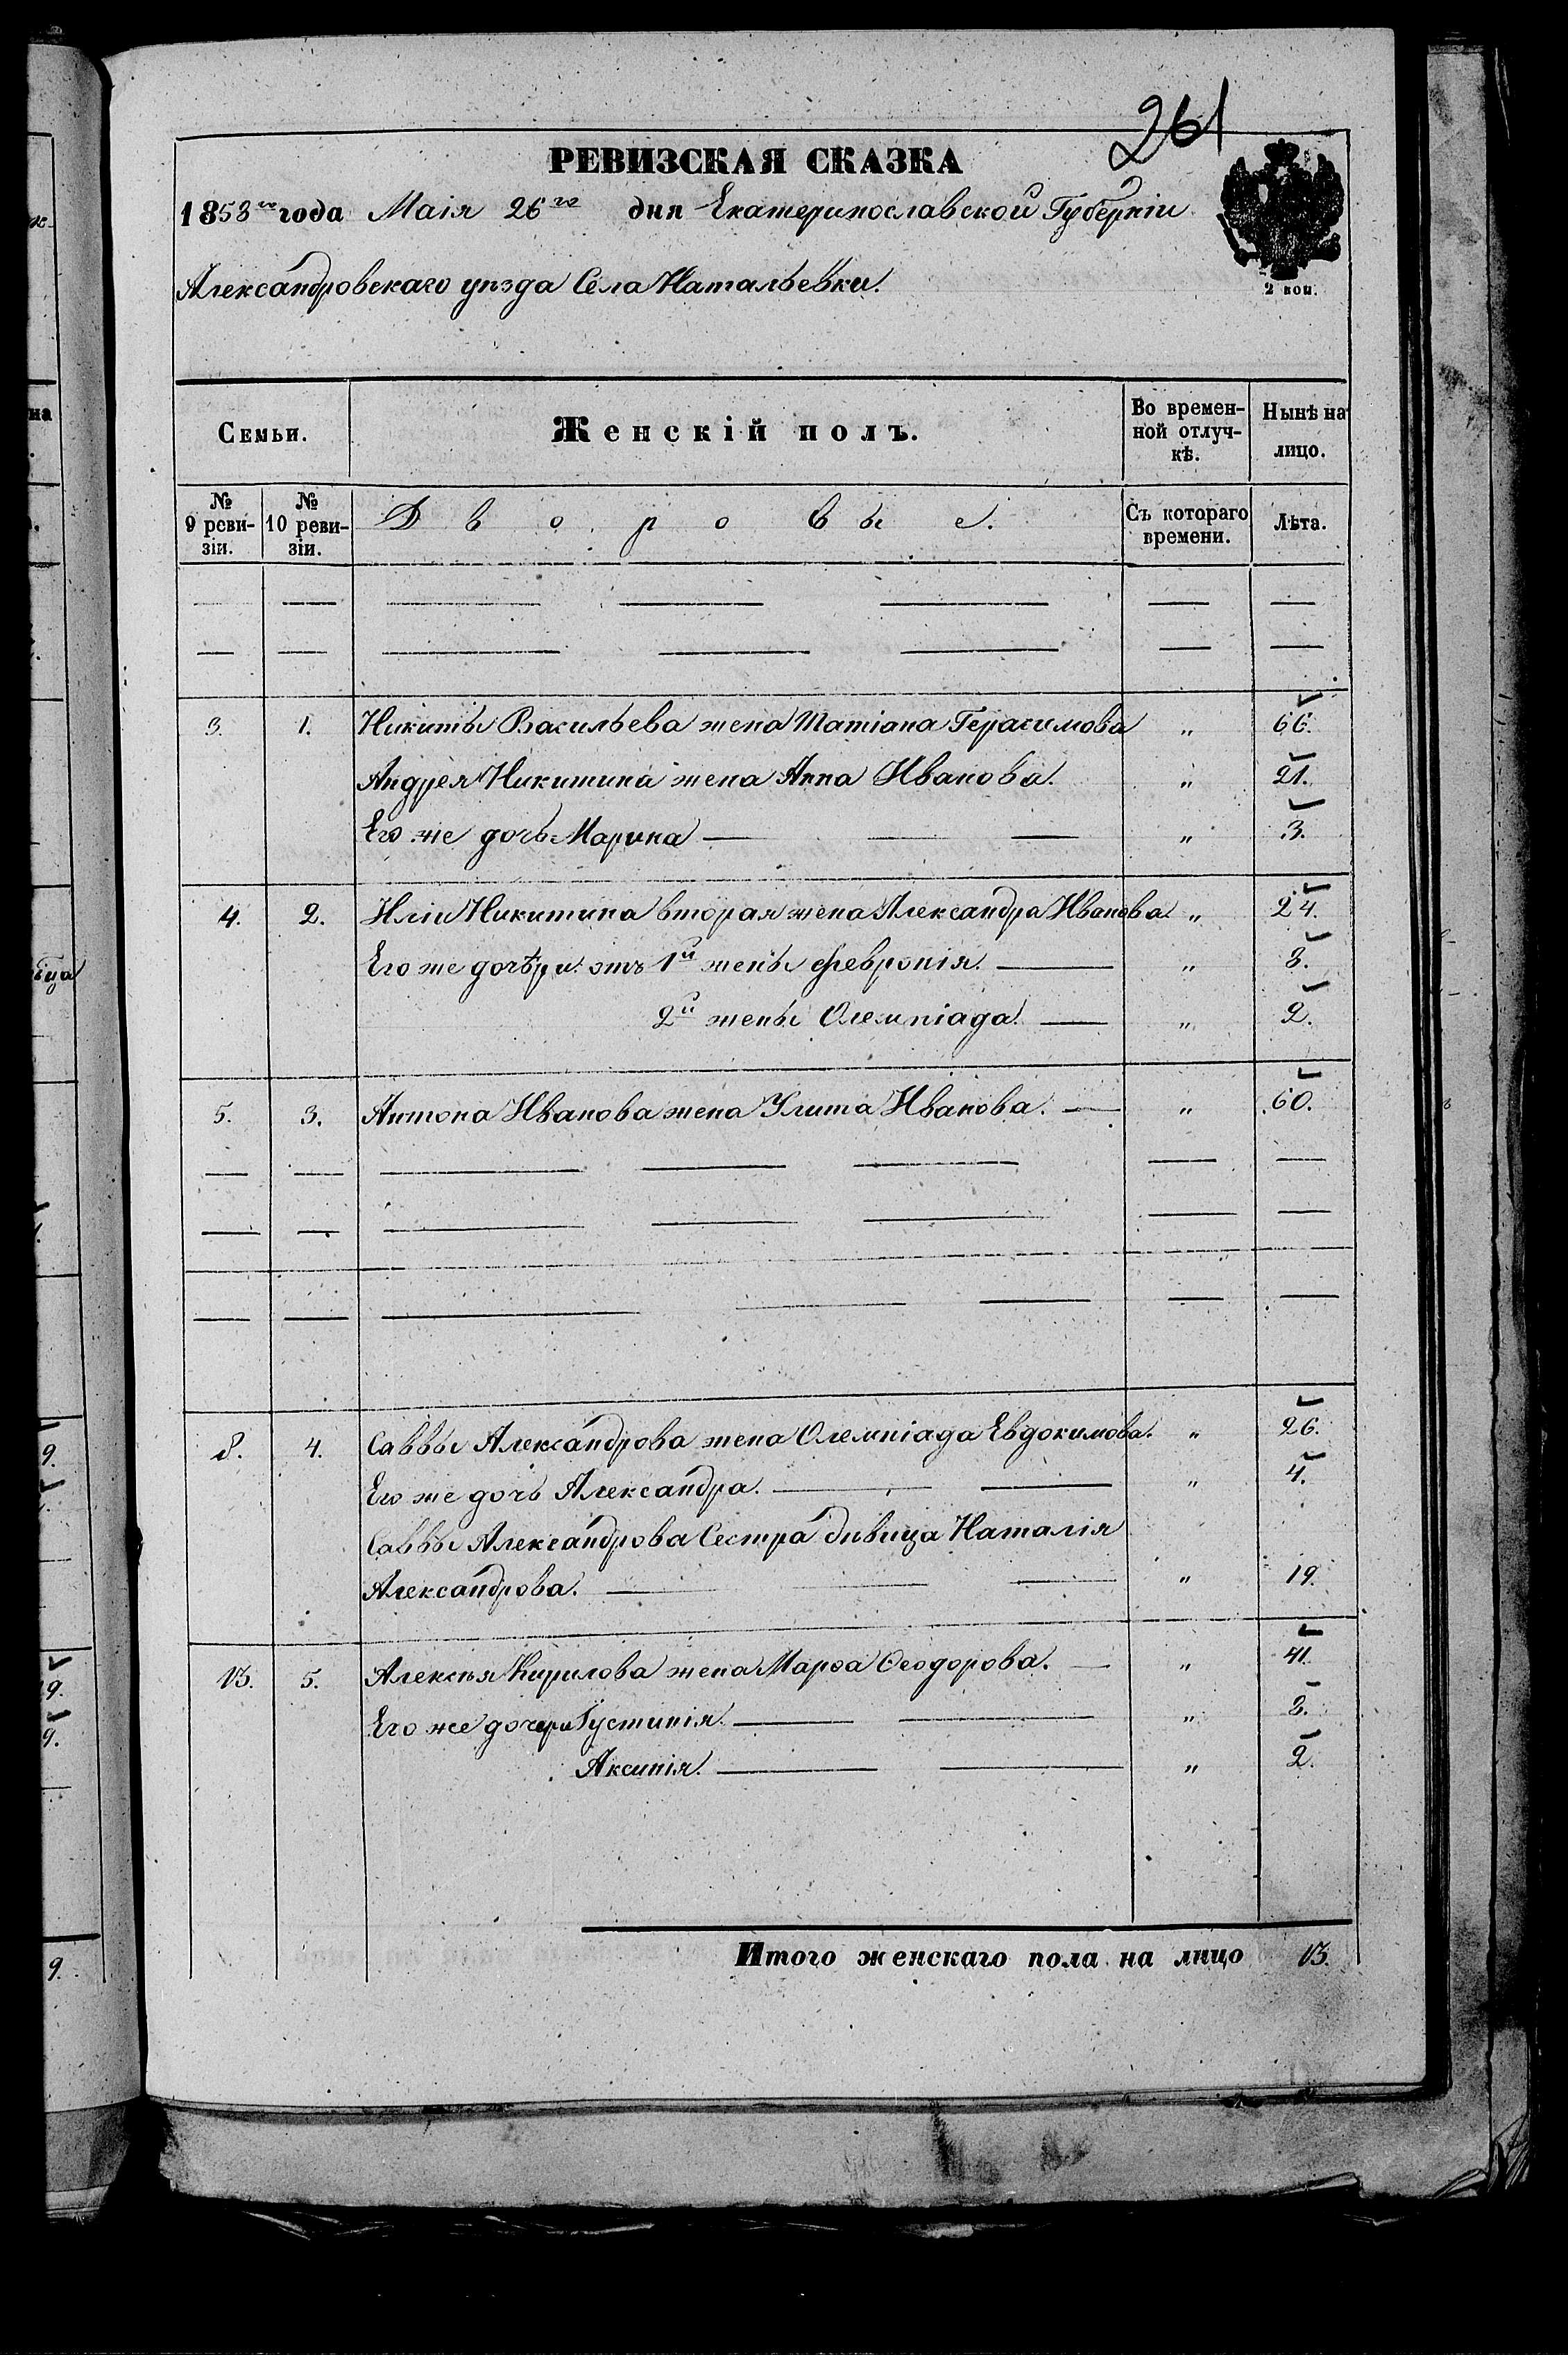 261
РЕВИЗСКАЯ СКАЗКА
1858го года Маія 26го дня Екатеринославской Губерніи
Александровскаго уѣзда Села Натальевки.
2 коп.
Семьи. Женскій полъ. Во времен- Нынѣ на
ной отлуч- лицо.
кѣ.
№ № Дворовые. Съ котораго Лѣта.
9 реви- 10 реви- времени.
зіи. зіи.
3. 1. Никиты Васильева жена Татіана Герасимова " 66.
Андрея Никитина жена Анна Иванова. " 21.
Его же дочь Марина — " 3.
4. 2. Иліи Никитина вторая жена Александра Иванова. " 24.
Его же дочѣри отъ 1й жены Февронія. — " 8.
2й жены Олемпіада. — " 2.
5. 3. Антона Иванова жена Улита Иванова. — " 60.
8. 4. Саввы Александрова жена Олемпіада Евдокимова. " 26.
Его же дочь Александра. — " 4.
Саввы Александрова Сестра дивица Наталія
Александрова. — " 19.
13. 5. Алексѣя Кирилова жена Марѳа Ѳеодорова. — " 41.
Его же дочери Густинія. — " 8.
Аксинія. — " 2.
Итого женскаго пола на лицо 13.